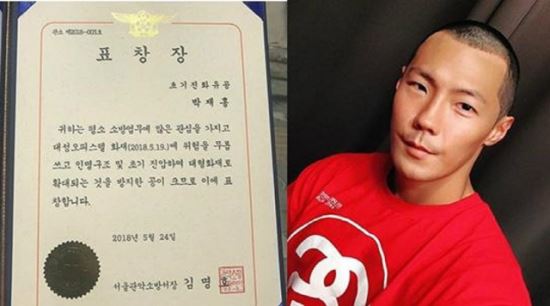 관소 제2018-001호
표 창 장
초기진화유공
박재홍
귀하는 평소 소방업무에 많은 관심을 가지고
대성오피스텔 화재(2018.5.19.)에 위험을 무릅
쓰고 인명구조 및 초기 진압하여 대형화재로
확대되는 것을 방지한 공이 크므로 이에 표
창합니다.
2018년 5월 24일
서울관악소방서장 김 명